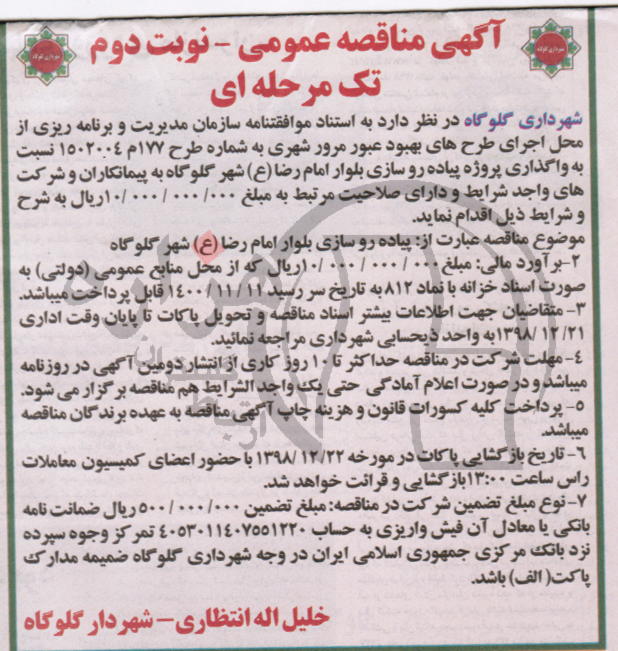 آگهی مناقصه عمومی - نوبت دوم
تک مرحله ای
شهرداری گلوگاه در نظر دارد به استناد موافقتنامه سازمان مدیریت و برنامه ریزی از
محل اجرای طرح های بهبود عبور مرور شهری به شماره طرح ۱۷۷م ۱۵۰۲۰۰۴ نسبت
به واگذاری پروژه پیاده رو سازی بلوار امام رضا (ع) شهر گلوگاه به پیمانکاران و شرکت
های واجد شرایط و دارای صلاحیت مرتبط به مبلغ ۱۰/۰۰۰/۰۰۰/۰۰۰ریال به شرح
و شرایط ذیل اقدام نماید.
موضوع مناقصه عبارت از: پیاده رو سازی بلوار امام رضا (ع) شهر گلوگاه
۲-بر آورد مالی: مبلغ ۱۰/۰۰۰/۰۰۰/۰۰۰ریال که از محل منابع عمومی (دولتی) به
صورت اسناد خزانه با نماد ۸۱۲ به تاریخ سر رسید ۱۴۰۰/۱۱/۱۱ قابل پرداخت میباشد.
۳- متقاضیان جهت اطلاعات بیشتر اسناد مناقصه و تحویل پاکات تا پایان وقت اداری
۱۳۹۸/۱۲/۲۱به واحد ذیحسابی شهرداری مراجعه نمائید.
۴- مهلت شرکت در مناقصه حداکثر تا ۱۰ روز کاری از انتشار دومین آگهی در روزنامه
میباشد و در صورت اعلام آمادگی حتی یک واجد الشرایط هم مناقصه بر گزار می شود.
۵- پرداخت کلیه کسورات قانون و هزینه چاپ آگهی مناقصه به عهده برندگان مناقصه
میباشد.
۶- تاریخ باز گشایی پاکات در مورخه ۱۳۹۸/۱۲/۲۲ با حضور اعضای کمیسیون معاملات
راس ساعت ۱۳:۰۰بازگشایی و قرائت خواهد شد.
۷- نوع مبلغ تضمین شرکت در مناقصه: مبلغ تضمین ۵۰۰/۰۰۰/۰۰۰ ریال ضمانت نامه
بانکی یا معادل آن فیش واریزی به حساب ۴۰۵۳۰۱۱۴۰۷۵۵۱۲۲۰ تمرکز وجوه سپرده
نزد بانک مرکزی جمهوری اسلامی ایران در وجه شهرداری گلوگاه ضمیمه مدارک
پاکت( الف) باشد.
خلیل اله انتظاری - شهردار گلوگاه